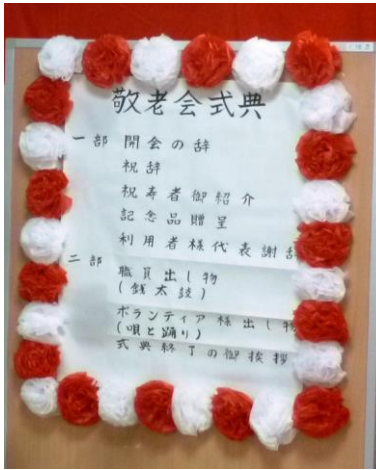 敬老会式典
一部 開会の辞
祝辞
祝寿者御紹介
記念品贈呈
利用者様代表謝辞
二部 職員出し物
(銭太鼓)
ボランティア様出し物
(唄と踊り)
式典終了の御挨拶